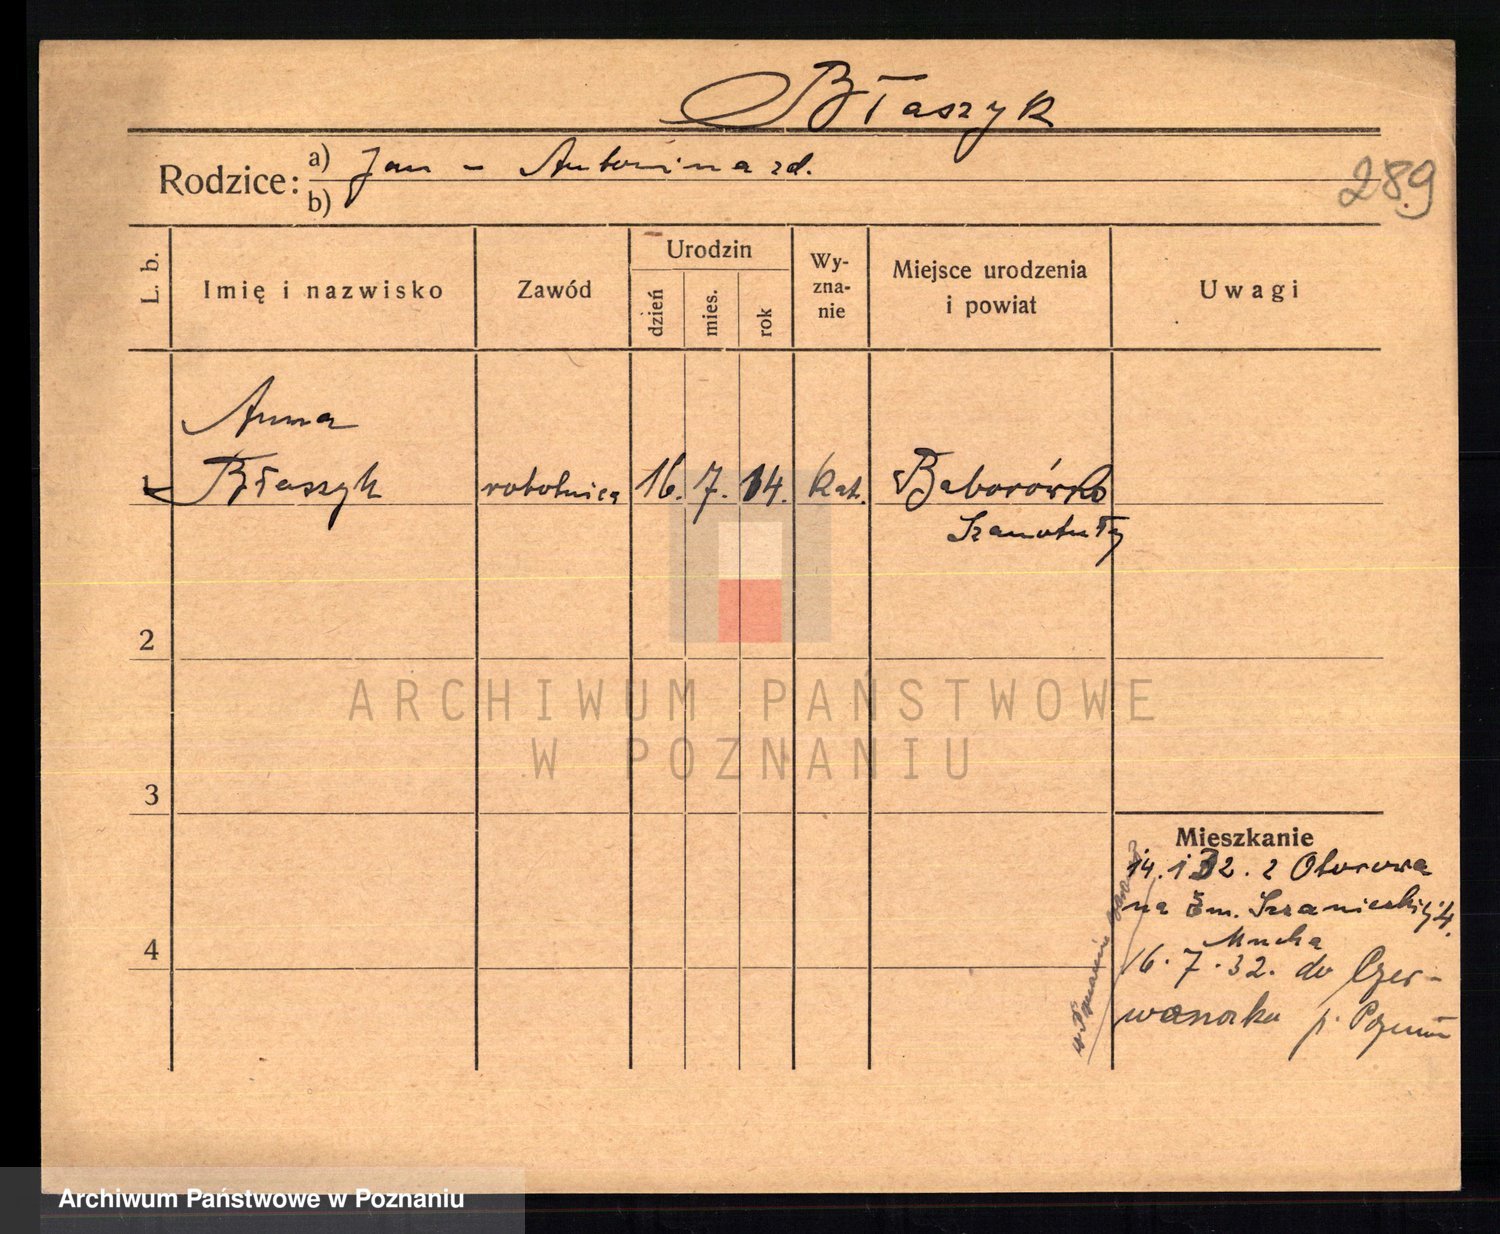 Błaszyk
Rodzice: a) Jan - Antonina zd.
b)
289
L. b.
Imię i nazwisko
Zawód
Urodzin
dzień
mies.
rok
Wy-
zna-
nie
Miejsce urodzenia
i powiat
Uwagi
Anna
1 Błaszyk robotnica 16. 7. 14. kat. Baborówko
Szamotuły
2
3
4
Mieszkanie
14. 1 32. z Otorowa
na Em. Szanieckiej 4.
Mucha
16. 7. 32. do Czer-
wonaka p. Poznań
ARCHIWUM PAŃSTWOWE
W POZNANIU
Archiwum Państwowe w Poznaniu